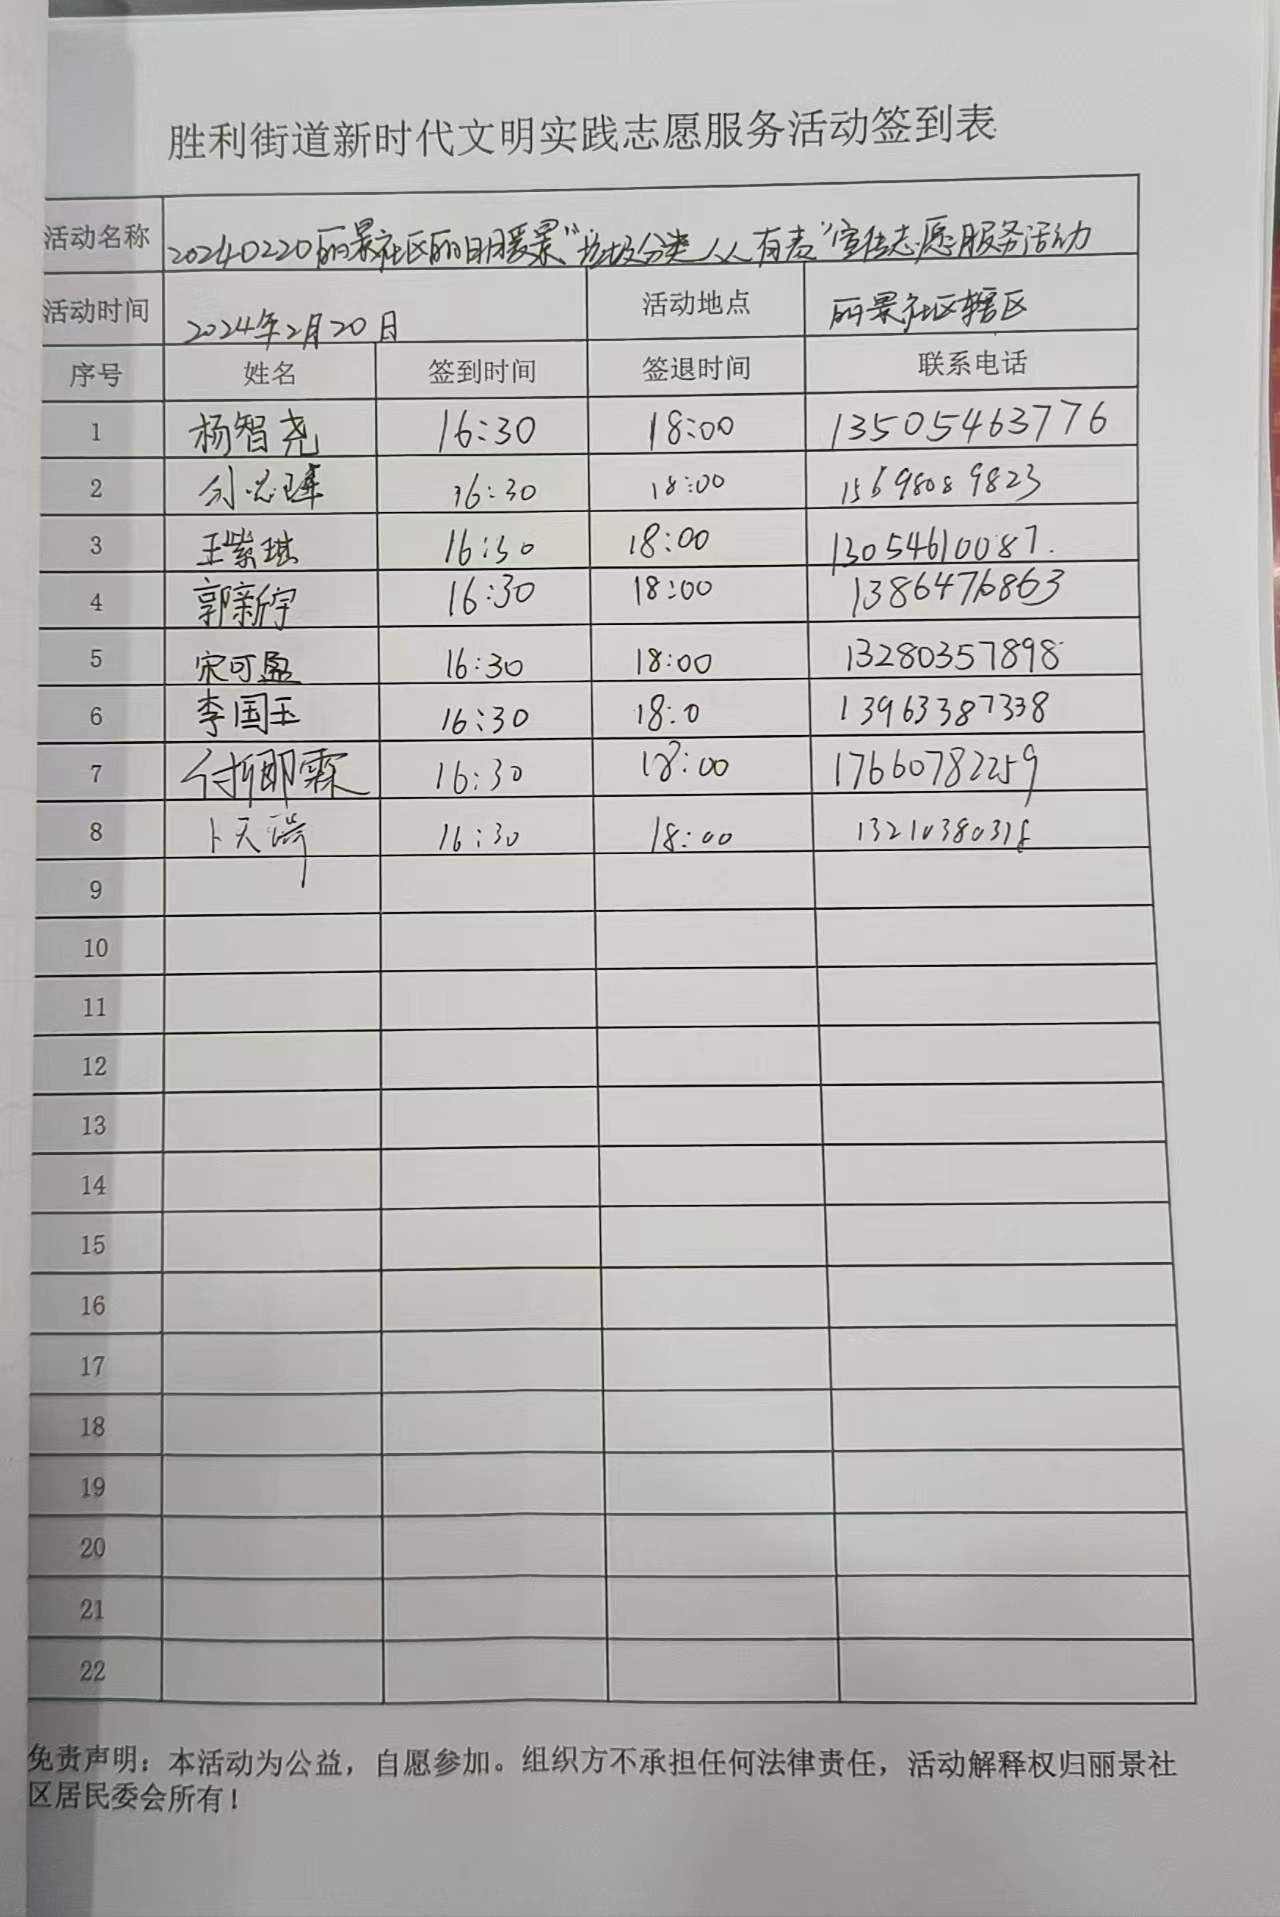 胜利街道新时代文明实践志愿服务活动签到表
活动名称 20240220丽景社区丽明暖景“垃圾分类人人有责”宣传志愿服务活动
活动时间 2024年2月20日 活动地点 丽景社区辖区
序号 姓名 签到时间 签退时间 联系电话
1 杨智尧 16:30 18:00 13505463776
2 16:30 18:00 15698089823
3 王紫琪 16:30 18:00 13054610087.
4 郭新宇 16:30 18:00 1386476863
5 宋可盈 16:30 18:00 13280357898
6 李国玉 16:30 18:0 13963387338
7 16:30 18:00 17660782259
8 卜天 16:30 18:00 13210380318
9
10
11
12
13
14
15
16
17
18
19
20
21
22
免责声明：本活动为公益，自愿参加。组织方不承担任何法律责任，活动解释权归丽景社
区居民委会所有！